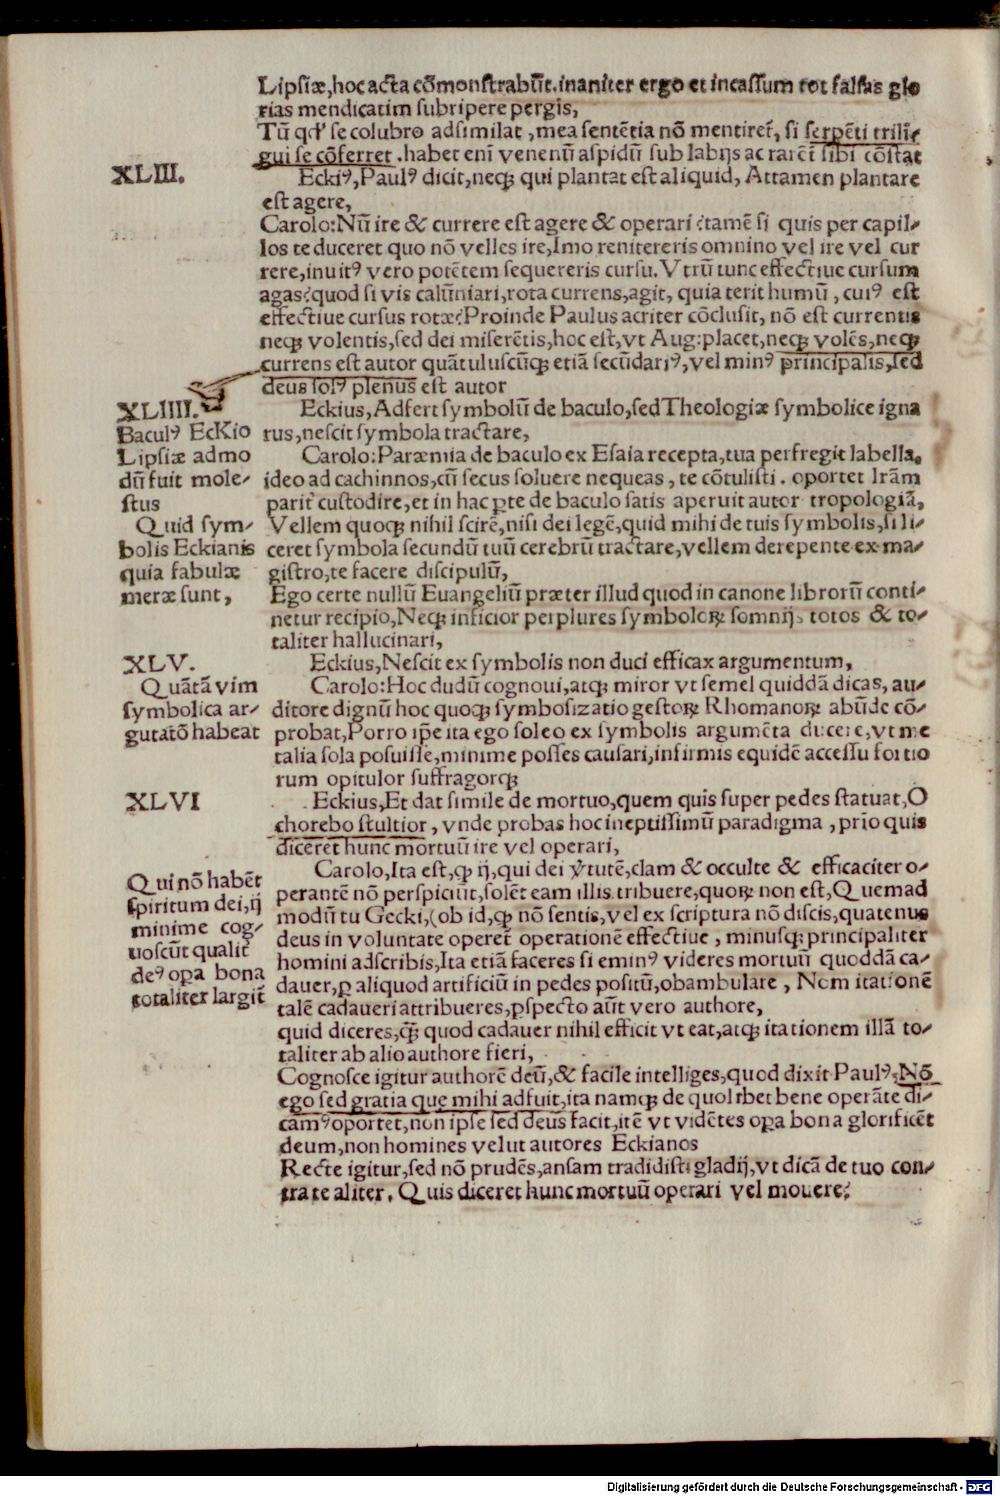 Lipsiæ,hoc acta cõmonſtrabũt.inaniter ergo et incaſſum tot falſas glo
rias mendicatim ſubripere pergis,
Tũ qď ſe colubro adſimilat ,mea ſentẽtia nõ mentiret᷑, ſi ſerpẽti trilĩ⸗
gui ſe cõferret .habet enĩ venenũ aſpidũ ſub labijs ac rarẽt ſibi cõſtat
XLIII.
Eckiꝰ,Paulꝰ dicit,neqꝫ qui plantat eſt aliquid, Attamen plantare
eſt agere,
Carolo:Nũ ire & currere eſt agere & operari ?tamẽ ſi quis per capil⸗
los te duceret quo nõ velles ire,Imo renitereris omnino vel ire vel cur
rere,inuitꝰ vero potẽtem ſequereris curſu.Vtrũ tunc effectiue curſum
agas?quod ſi vis calũniari,rota currens,agit, quia terit humũ , cuiꝰ eſt
effectiue curſus rotæ?Proinde Paulus acriter cõcluſit, nõ eſt currentis
neqꝫ volentis,ſed dei miſerẽtis,hoc eſt,vt Aug:placet,neqꝫ volẽs,neqꝫ
currens eſt autor quãtuluſcũqꝫ etiã ſecũdariꝰ,vel minꝰ principalis,ſed
deus ſolꝰ plenus eſt autor
XLIIII.
Baculꝰ EcKio
Lipſiæ admo
dũ fuit mole⸗
ſtus
Quid ſym⸗
bolis Eckianis
quia fabulæ
meræ ſunt,
Eckius,Adfert ſymbolũ de baculo,ſed Theologiæ ſymbolice igna
rus,neſcit ſymbola tractare,
Carolo:Paræmia de baculo ex Eſaia recepta,tua perfregit labella,
ideo ad cachinnos,cũ ſecus ſoluere nequeas , te cõtuliſti . oportet Irãm
parit᷑ cuſtodire,et in hac ꝑte de baculo ſatis aperuit autor tropologiã,
Vellem quoqꝫ nihil ſcirẽ,niſi dei legẽ,quid mihi de tuis ſymbolis,ſi li⸗
ceret ſymbola ſecundũ tuũ cerebrũ tractare,vellem derepente ex ma⸗
giſtro,te facere diſcipulũ,
Ego certe nullũ Euangeliũ præter illud quod in canone librorũ conti⸗
netur recipio,Neqꝫ inficior perplures ſymboloꝝ ſomnijs totos & to⸗
taliter hallucinari,
XLV.
Quãtã vim
ſymbolica ar⸗
gutatõ habeat
Eckius,Neſcit ex ſymbolis non duci efficax argumentum,
Carolo:Hoc dudũ cognoui,atqꝫ miror vt ſemel quiddã dicas, au⸗
ditore dignũ hoc quoqꝫ ſymboſizatio geſtoꝝ Rhomanoꝝ abũde cõ⸗
probat,Porro ip̃e ita ego ſoleo ex ſymbolis argumẽta ducere,vt me
talia ſola poſuiſſe,minime poſſes cauſari,infirmis equidẽ acceſſu fortio
rum opitulor ſuffragorqꝫ
XLVI
Eckius,Et dat ſimile de mortuo,quem quis ſuper pedes ſtatuat,O
chorebo ſtultior, vnde probas hoc ineptiſſimũ paradigma , prio quis
diceret hunc mortuũ ire vel operari,
Qui nõ habẽt
ſpiritum dei,ij
minime cog⸗
noſcũt qualit᷑
deꝰ oꝑa bona
totaliter largit᷑
Carolo,Ita eſt,ꝙ ij,qui dei v̉tutẽ,clam & occulte & efficaciter o⸗
perantẽ nõ perſpiciũt,ſolẽt eam illis tribuere,quoꝝ non eſt,Quemad
modũ tu Gecki,(ob id,ꝙ nõ ſentis,vel ex ſcriptura nõ diſcis,quatenus
deus in voluntate operet᷑ operationẽ effectiue , minuſqꝫ principaliter
homini adſcribis,Ita etiã faceres ſi eminꝰ videres mortuũ quoddã ca⸗
dauer,ꝑ aliquod artificiũ in pedes poſitũ,obambulare , Nem itationẽ
talẽ cadaueri attribueres,ꝑſpecto aũt vero authore,
quid diceres,q̃ꝫ quod cadauer nihil efficit vt eat,atqꝫ itationem illã to⸗
taliter ab alio authore fieri,
Cognoſce igitur authorẽ deũ,& facile intelliges,quod dixit Paulꝰ,Nõ
ego ſed gratia que mihi adfuit,ita namqꝫ de quolibet bene operãte di⸗
camꝰ oportet,non ipſe ſed deus facit,itẽ vt vidẽtes oꝑa bona glorificẽt
deum,non homines velut autores Eckianos
Recte igitur,ſed nõ prudẽs,anſam tradidiſti gladij,vt dicã de tuo con⸗
tra te aliter, Quis diceret hunc mortuũ operari vel mouere?
Digitalisierung gefördert durch die Deutsche Forschungsgemeinschaft - DFG